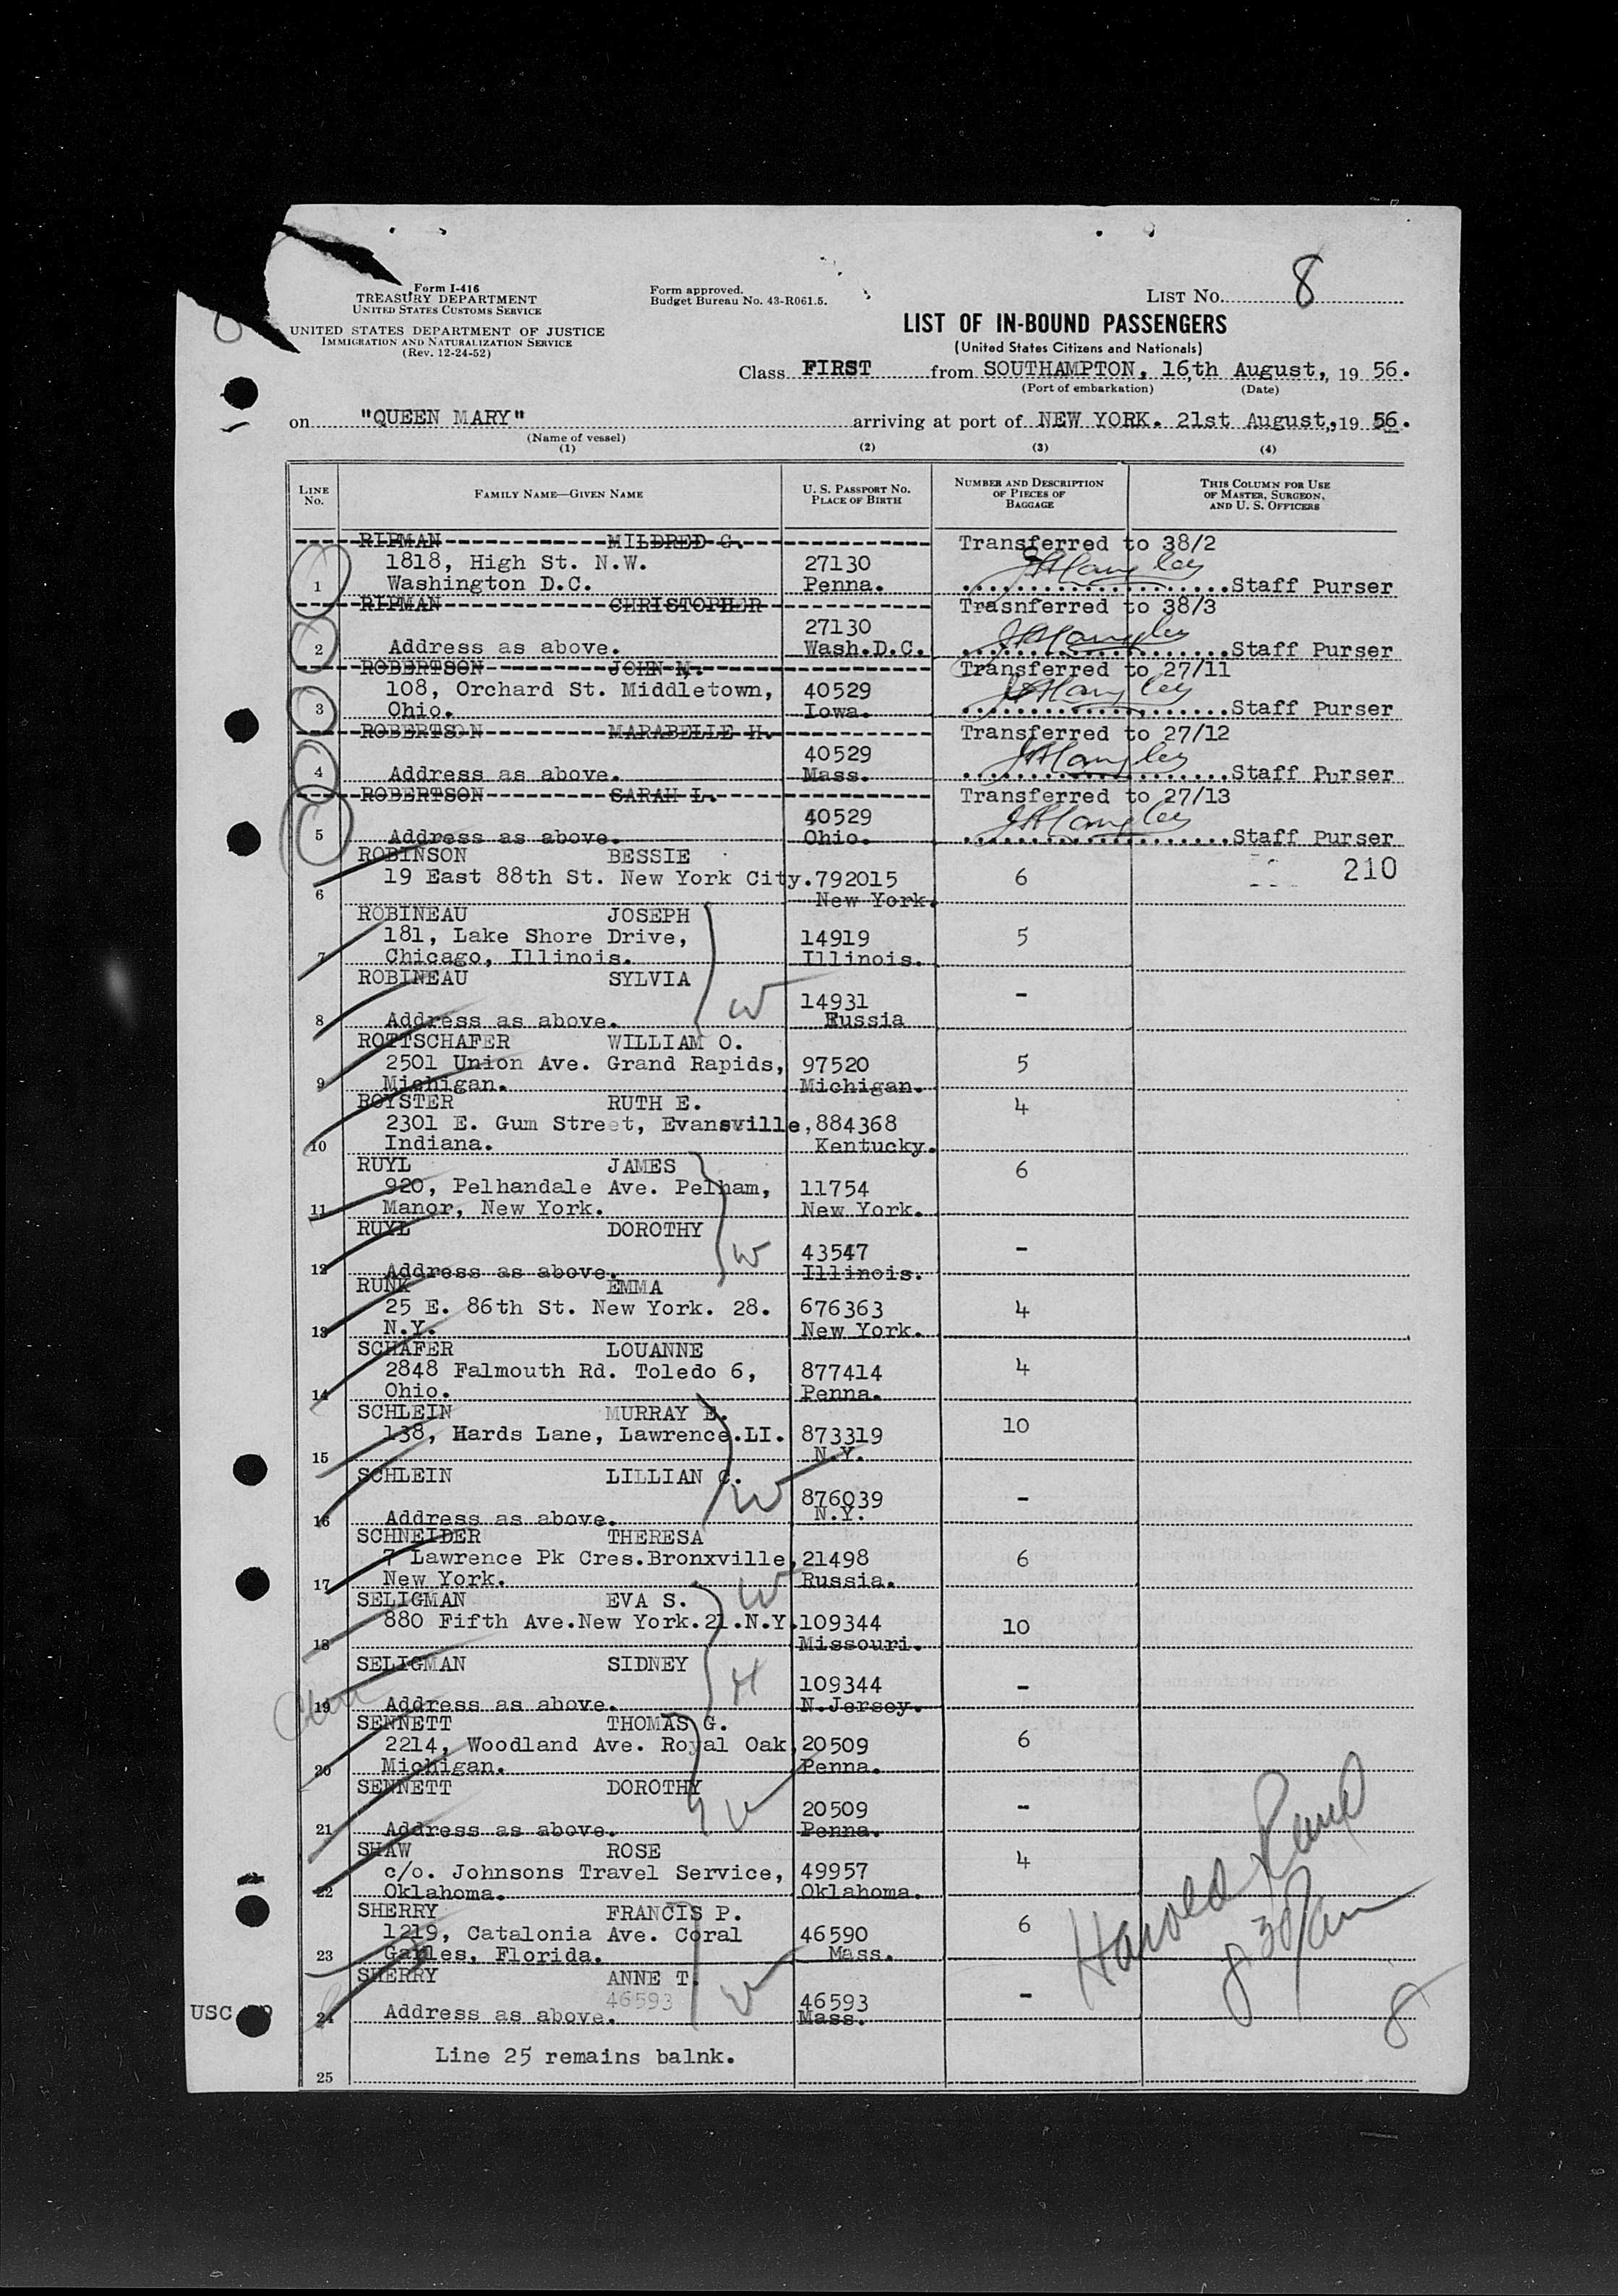 Form I-416
TREASURY DEPARTMENT
UNITED STATES CUSTOMS SERVICE
UNITED STATES DEPARTMENT OF JUSTICE
IMMIGRATION AND NATURALIZATION SERVICE
(Rev. 12-24-52)
Form approved.
Budget Bureau No. 43-R061.5.
LIST NO. 8
LIST OF IN-BOUND PASSENGERS
(United States Citizens and Nationals)
Class FIRST from SOUTHAMPTON, 16,th August,, 19 56.
(Port of embarkation) (Date)
on "QUEEN MARY" arriving at port of NEW YORK. 21st August,, 19 56.
(Name of vessel)
(1) (2) (3) (4)
LINE No. FAMILY NAME—GIVEN NAME U. S. PASSPORT NO. PLACE OF BIRTH NUMBER AND DESCRIPTION OF PIECES OF BAGGAGE THIS COLUMN FOR USE OF MASTER, SURGEON, AND U. S. OFFICERS
RIPMAN MILDRED G. Transferred to 38/2
1818, High St. N.W. 27130
1 Washington D.C. Penna. Staff Purser
RIPMAN CHRISTOPHER Trasnferred to 38/3
27130
2 Address as above. Wash.D.C. Staff Purser
ROBERTSON JOHN M. Transferred to 27/11
108, Orchard St. Middletown, 40529
3 Ohio. Iowa. Staff Purser
ROBERTSON MARABELLE H. Transferred to 27/12
40529
4 Address as above. Mass. Staff Purser
ROBERTSON SARAH L. Transferred to 27/13
40529
5 Address as above. Ohio. Staff Purser
ROBINSON BESSIE 210
19 East 88th St. New York City. 792015 6
6 New York.
ROBINEAU JOSEPH
181, Lake Shore Drive, 14919 5
7 Chicago, Illinois. Illinois.
ROBINEAU SYLVIA
W 14931 -
8 Address as above. Russia
ROTTSCHAFER WILLIAM O.
2501 Union Ave. Grand Rapids, 97520 5
9 Michigan. Michigan.
ROYSTER RUTH E. 4
2301 E. Gum Street, Evansville, 884368
10 Indiana. Kentucky.
RUYL JAMES 6
920, Pelhandale Ave. Pelham, 11754
11 Manor, New York. New York.
RUYL DOROTHY
W 43547 -
12 Address as above. Illinois.
RUNK EMMA
25 E. 86th St. New York. 28. 676363 4
13 N.Y. New York.
SCHAFER LOUANNE
2848 Falmouth Rd. Toledo 6, 877414 4
14 Ohio. Penna.
SCHLEIN MURRAY E. 10
138, Hards Lane, Lawrence.LI. 873319
15 N.Y.
SCHLEIN LILLIAN C.
W 876039 -
16 Address as above. N.Y.
SCHNEIDER THERESA
7 Lawrence Pk Cres.Bronxville, 21498 6
17 New York. Russia.
SELIGMAN EVA S. W
880 Fifth Ave.New York.21.N.Y. 109344 10
18 Missouri.
SELIGMAN SIDNEY
H 109344 -
19 Address as above. N.Jersey.
SENNETT THOMAS G.
2214, Woodland Ave. Royal Oak, 20509 6
20 Michigan. Penna.
SENNETT DOROTHY
W 20509 -
21 Address as above. Penna.
SHAW ROSE
c/o. Johnsons Travel Service, 49957 4
22 Oklahoma. Oklahoma.
SHERRY FRANCIS P.
1219, Catalonia Ave. Coral 46590 6
23 Gables, Florida. Mass.
SHERRY ANNE T.
46593 W 46593 -
24 Address as above. Mass.
USC
Harold
8 30 am
8
Line 25 remains balnk.
25